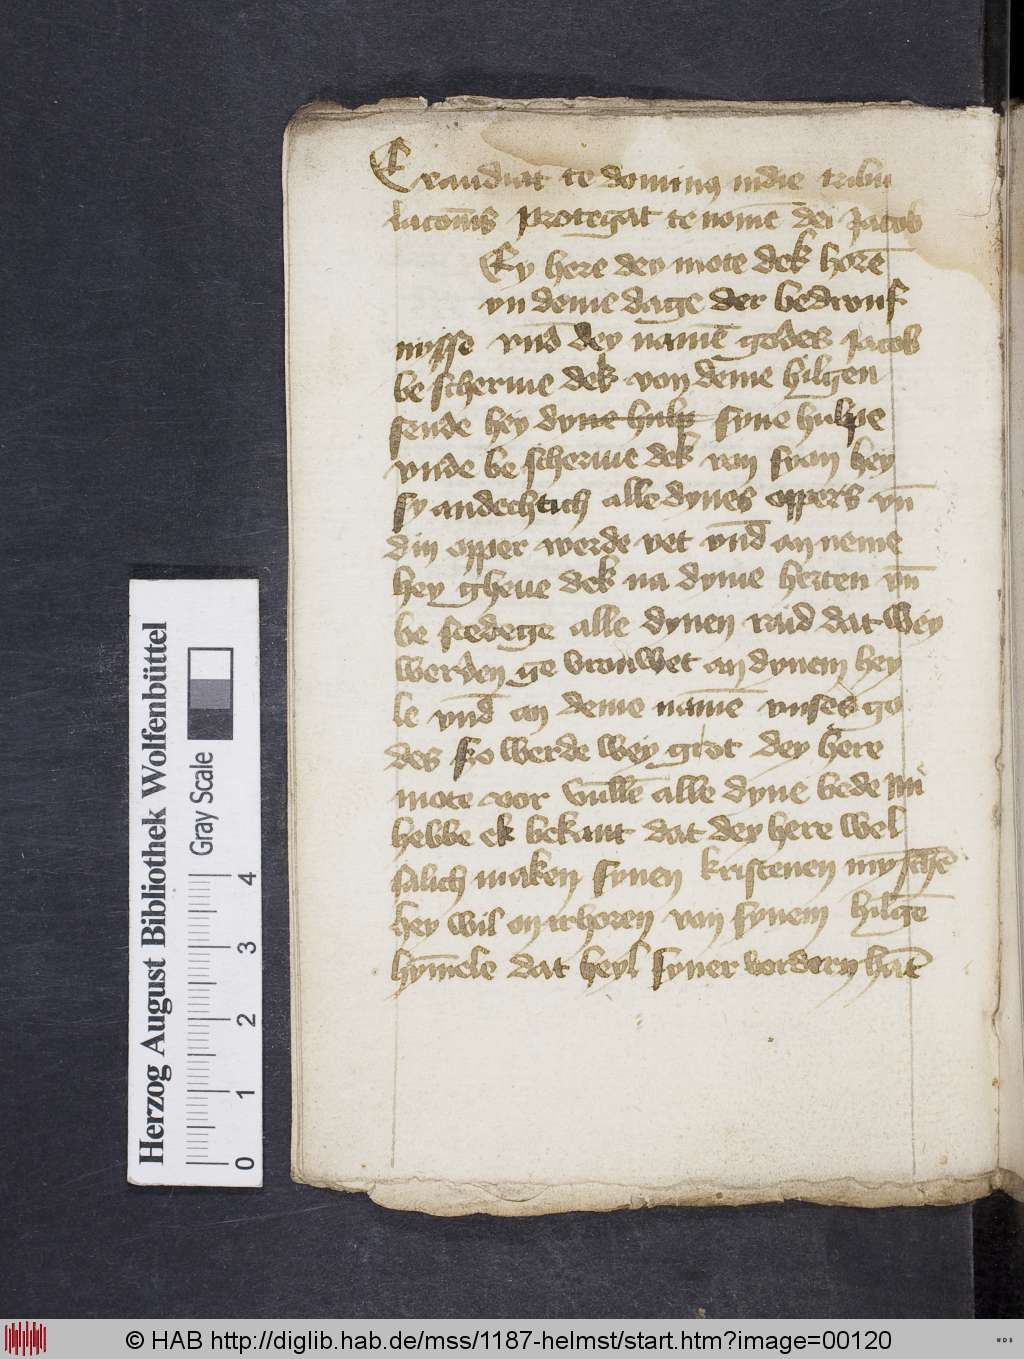 Exaudiat te dominꝰ in die tribu
lacōnis protegat te nomē dei Jacob
Ey here dey mote dek horē
yn deme dage der bedrouf
nysse vnd̄ dey namē godes Jacob
be scherme dek von deme hilgen
sende hey dyne hulp syne hulpe
vnde be scherme dek van syon hey
sy andechtich alle dynes oppers vn̄
din opper werde vet vnd̄ an neme
hey gheue dek na dyme herten vn̄
be stedege alle dynen rād dat wey
werden ge vrouwet an dynem hey
le vnd̄ an deme namē vnses go
des so werde wey grot dey here
mote vor vullē alle dyne bede nu
hebbe ek bekant dat dey here wel
salich maken synen kristenen mynschē
hey wil on irhoren van synem hilgē
hȳmele dat heyl syner vordern hāt
Herzog August Bibliothek Wolfenbüttel
Gray Scale
0 1 2 3 4
© HAB http://diglib.hab.de/mss/1187-helmst/start.htm?image=00120